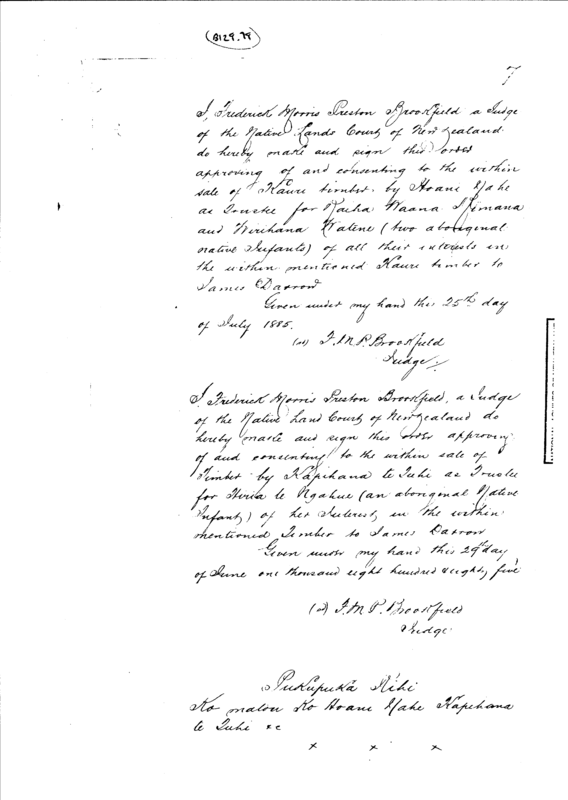 (B129.79)
7
I, Frederick Morris Preston Brookfield a Judge
of the Native Lands Court of New Zealand
do hereby make and sign this order
approving of and consenting to the within
sale of Kauri timber by Hoani Nahe
as Trustee for Raiha Waana
and Wirihana Watene (two aboriginal
native Infants) of all their interests in
the within mentioned Kauri timber to
James Darrow
Given under my hand this 25th day
of July 1885.
F. M. P. Brookfield
Judge
I, Frederick Morris Preston Brookfield, a Judge
of the Native Land Court of New Zealand do
hereby make and sign this order approving
of and consenting to the within sale of
Timber by Kapihana te Tuhi as Trustee
for te Ngahue (an aboriginal Native
Infant) of her Interest in the within
mentioned Timber to James Darrow
Given under my hand this 29th day
of June one thousand eight hundred & eighty five
F. M. P. Brookfield
Judge
Pukupuka Rihi
Ko matou Ko Hoani Nahe Kapihana
te Tuhi &c
x x x